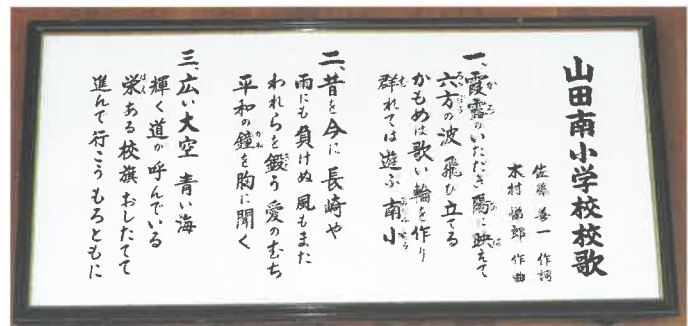 山田南小学校校歌
佐藤善一 作詞
木村 郎 作曲
一、霞露のいただき陽に映えて
六方の波 飛び立てる
かもめは歌い輪を作り
群れては遊ぶ 南小
二、昔を今に 長崎や
雨にも負けぬ 風もまた
われらを鍛う 愛のむち
平和の鐘を胸に聞く
三、広い大空 青い海
輝く道が 呼んでいる
栄ある校旗 おしたてて
進んで行こう もろともに